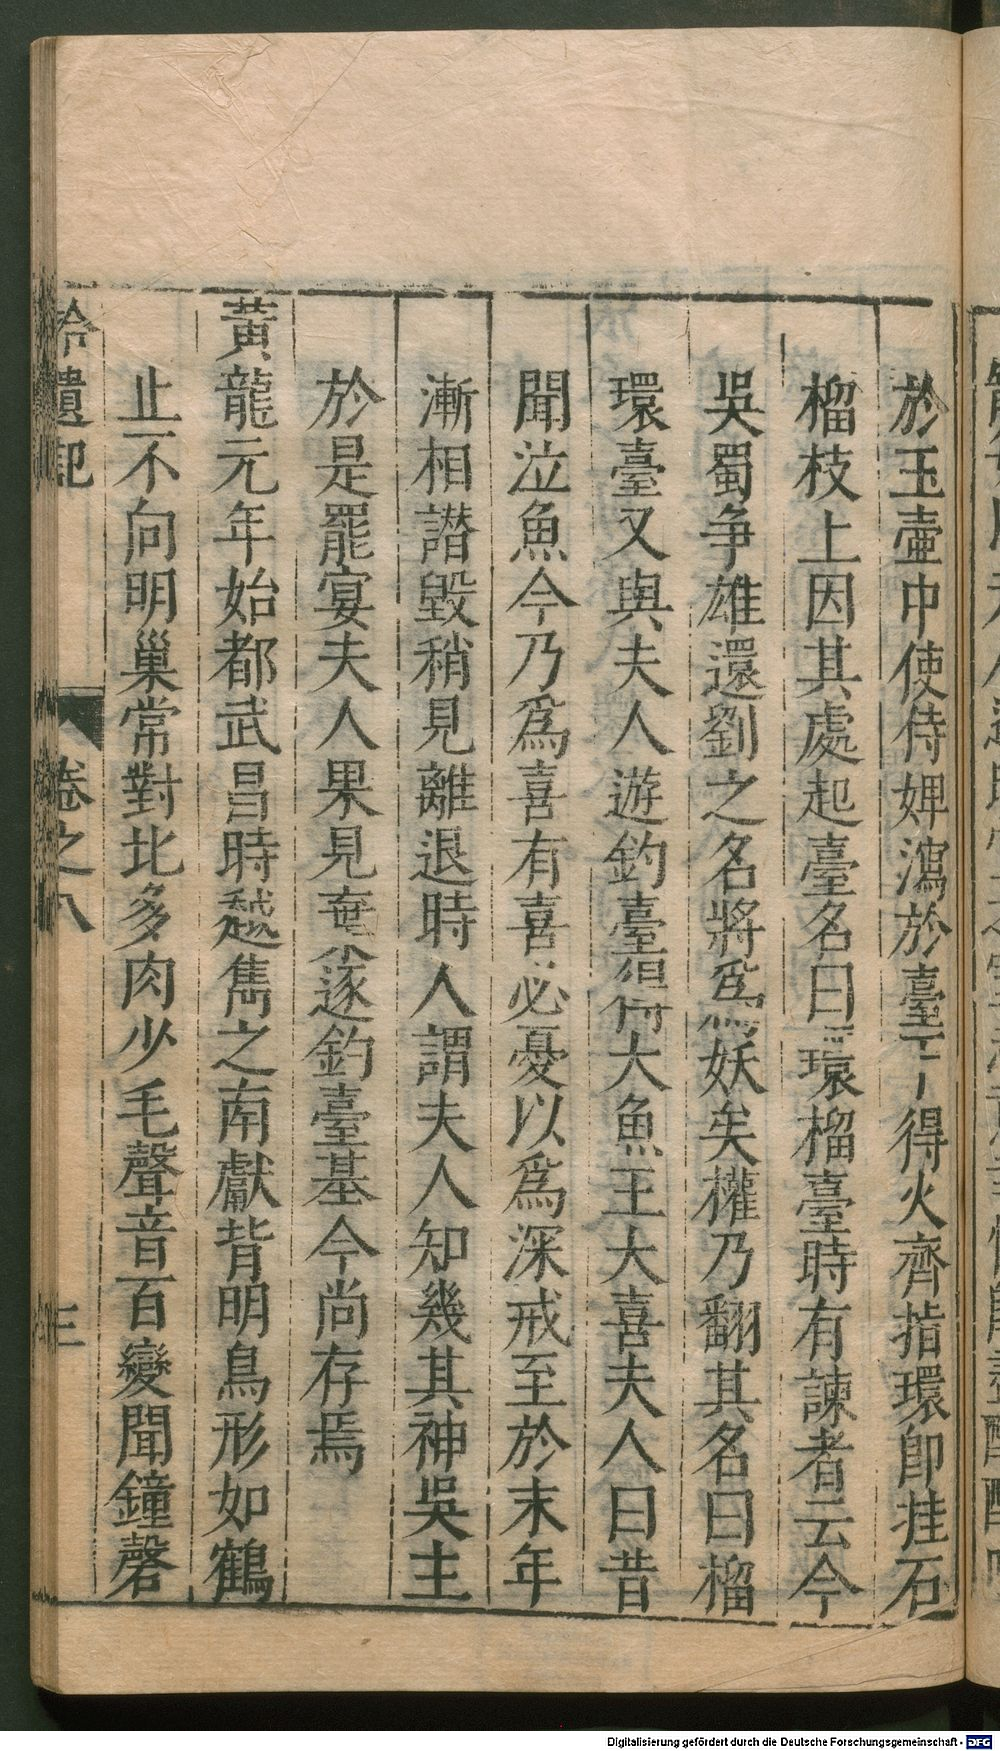 於玉壷中使侍婢瀉於臺下得火齊指環卽挂石
榴枝上因其處起臺名曰環榴臺時有諫者云今
吳蜀争雄還劉之名將爲妖矣權乃翻其名曰榴
環臺又與夫人遊釣臺得大魚王大喜夫人曰昔
聞泣魚今乃爲喜有喜必憂以爲深戒至於末年
漸相譖毀稍見離退時人謂夫人知幾其神吳主
於是罷宴夫人果見棄逐釣臺基今尚存焉
黃龍元年始都武昌時越嶲之南獻背明鳥形如鶴
止不向明巢常對北多肉少毛聲音百變聞鐘磬
拾遺記
卷之八
三
Digitalisierung gefördert durch die Deutsche Forschungsgemeinschaft - DFG